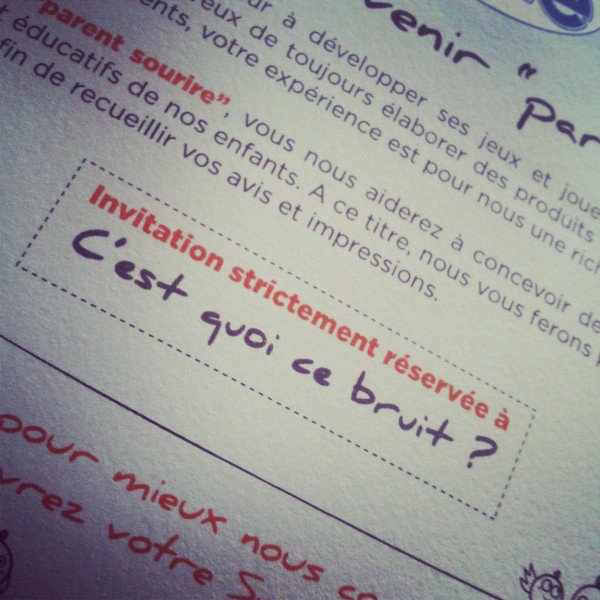 venir "Par
ur à développer ses jeux et joue
eux de toujours élaborer des produits
ents, votre expérience est pour nous une rich
"parent sourire", vous nous aiderez à concevoir de
t éducatifs de nos enfants. A ce titre, nous vous ferons p
fin de recueillir vos avis et impressions.
Invitation strictement réservée à
C'est quoi ce bruit ?
pour mieux nous co
vrez votre S